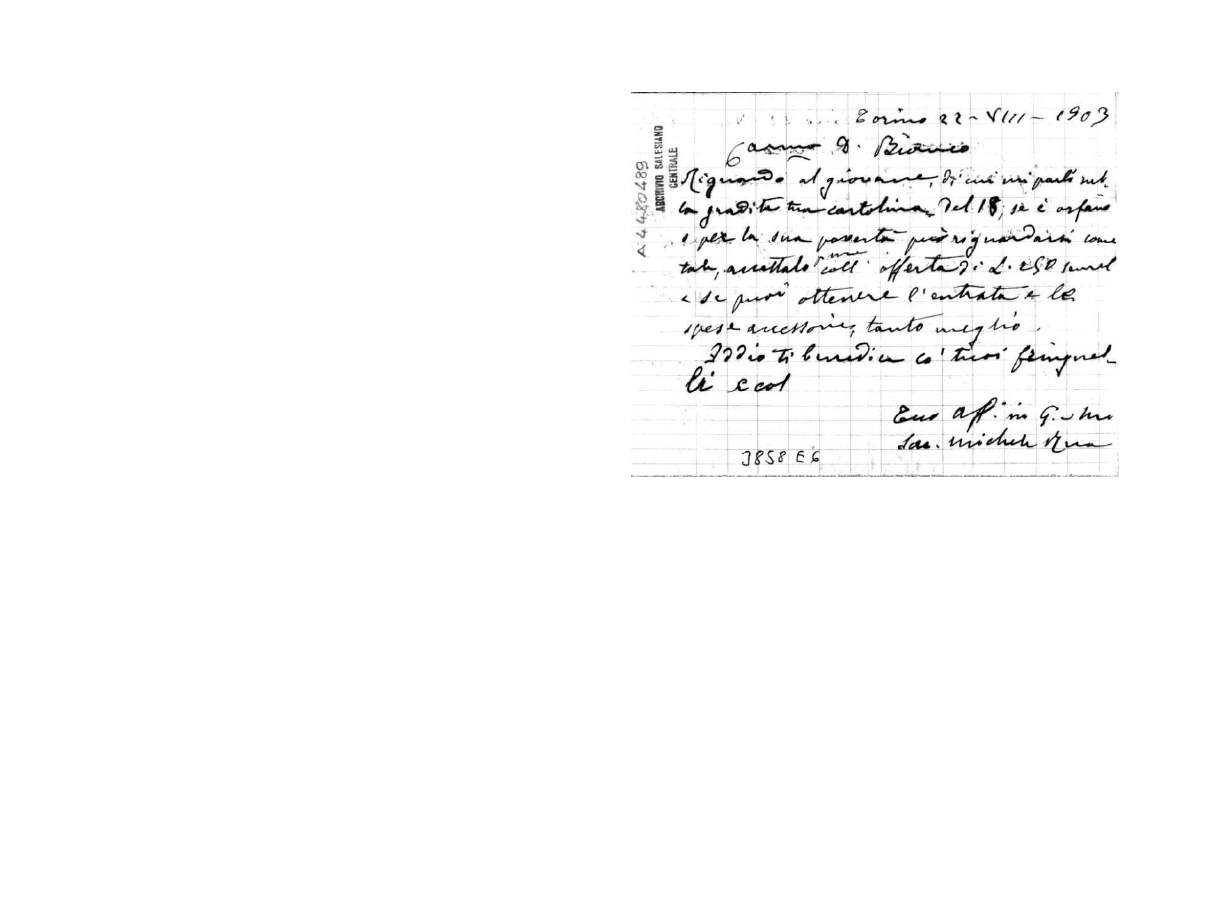 Torino 22-VIII-1903
Carmo D. Bianco
Riguardo al giovane, di cui mi parli nel-
la gradita tua cartolina del 18, se è orfano
e per la sua povertà può riguardarsi come
tale, accettalo coll' offerta di L. 250
e se puoi ottenere l'entrata e le
spese accessorie, tanto meglio.
Iddio ti benedica co' tuoi fringuel-
li e col
Tuo aff. in G. e
Sac. Michele Rua
3858 E6
A4480489
ARCHIVIO SALESIANO
CENTRALE